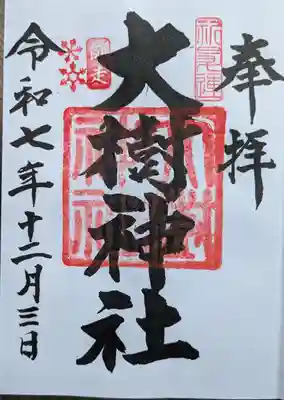 奉拝
大樹神社
令和七年十二月三日
師走